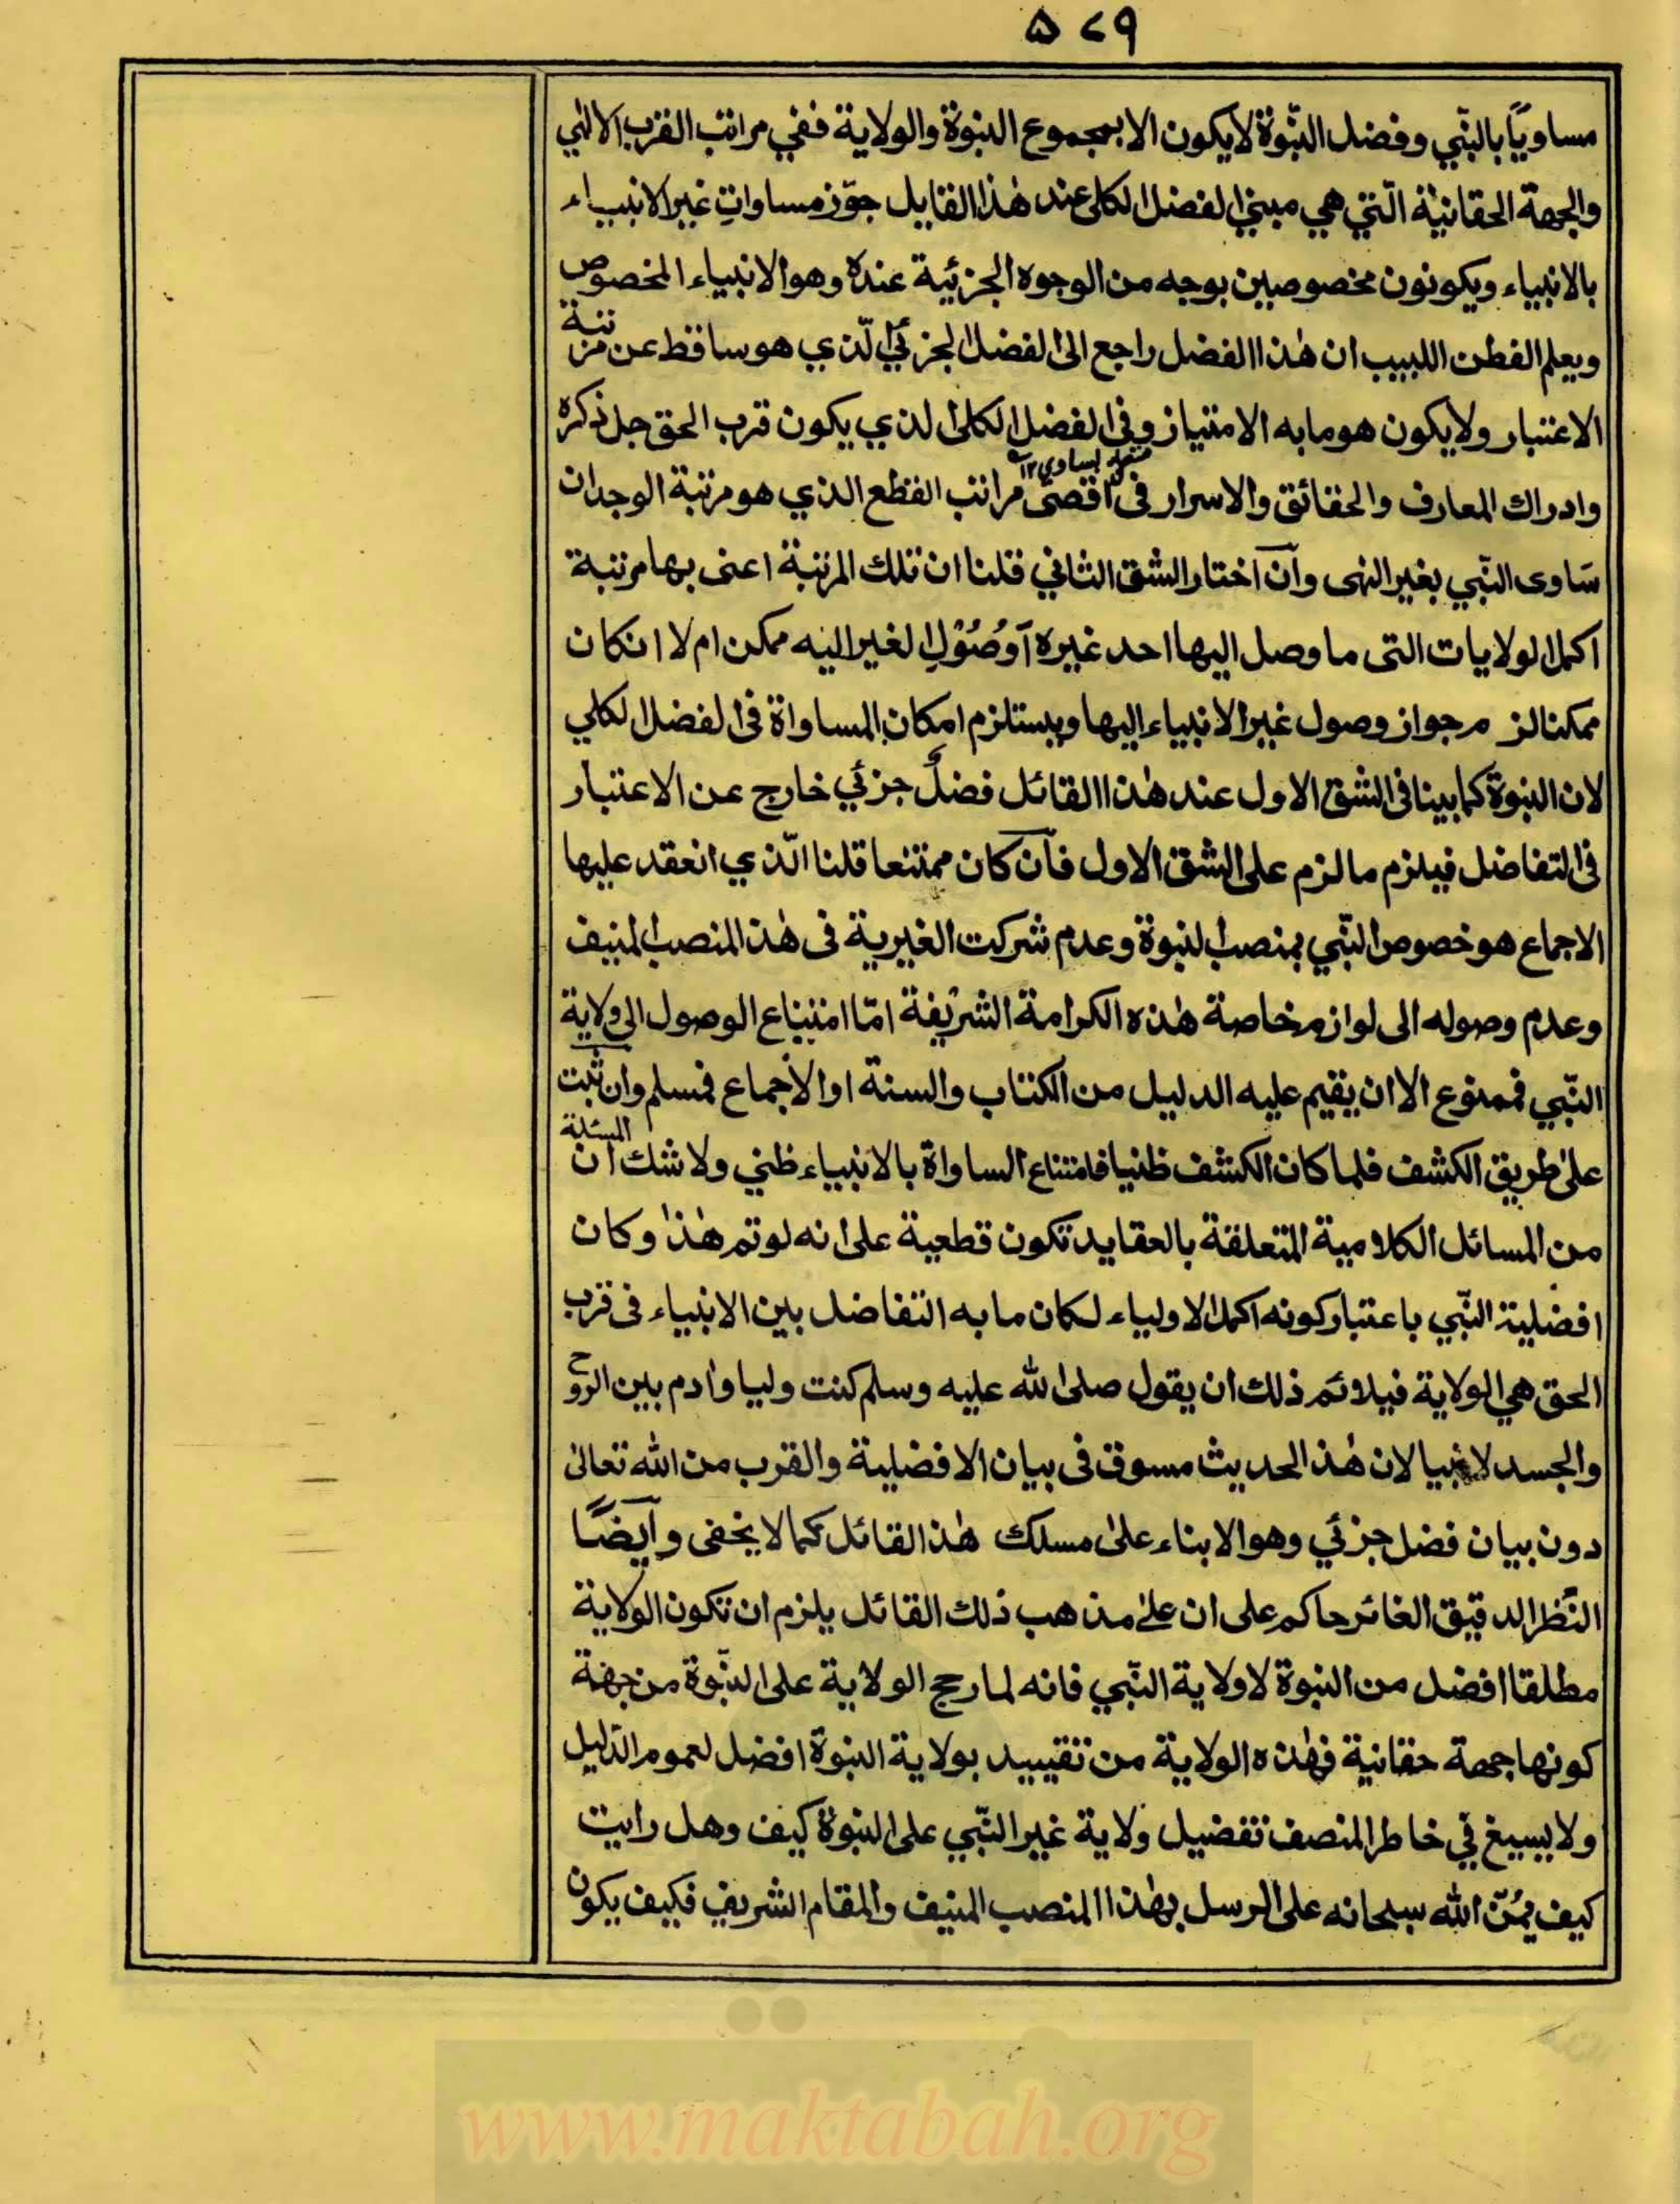 ۵۷۹
مساويًا بالنّبي وفضل النّبوّة لا يكون الا بمجموع النبوة والولاية ففي مراتب القرب الالٰهي
والجهة الحقانية الّتي هي مبنى الفضل الكلى عند هٰذا القايل جوّز مساواتِ غير الانبياء
بالانبياء ويكونون مخصوصين بوجه من الوجوه الجزئية عنده وهو الانبياء المخصوص
ويعلم الفطن اللبيب ان هٰذا الفضل راجع الى الفضل الجزئي الّذي هو ساقط عن مرتبة
الاعتبار ولا يكون هو ما به الامتياز وفى الفضل الكلى الذي يكون قرب الحق جل ذكره
متعلق بساوى ١٢
وادراك المعارف والحقائق والاسرار فى اقصى مراتب القطع الذي هو مرتبة الوجدان
سَاوى النّبي بغير النهى وآن اختار الشق الثاني قلنا ان تلك المرتبة اعنى بها مرتبة
اكمل الولايات التى ما وصل اليها احد غيره آوصُوْلِ الغير اليه ممكن ام لا ان كان
ممكنا لزم جواز وصول غير الانبياء اليها ويستلزم امكان المساواة فى الفضل الكلي
لان النبوة كما بينا فى الشق الاول عند هٰذا القائل فضلٌ جزئي خارج عن الاعتبار
فى التفاضل فيلزم ما لزم على الشق الاول فآن كان ممتنعا قلنا الّذي انعقد عليها
الاجماع هو خصوص النّبي بمنصب النبوة وعدم شركت الغيرية فى هٰذ المنصب المنيف
وعدم وصوله الى لوازم خاصة هٰذه الكرامة الشريفة امّا امتناع الوصول الى ولاية
النّبي فممنوع الا ان يقيم عليه الدليل من الكتاب والسنة او الاجماع فمسلم وان ثبت
على طريق الكشف فلما كان الكشف ظنيا فامتناع الساواة بالانبياء ظني ولا شك ان المسئلة
من المسائل الكلامية المتعلقة بالعقايد تكون قطعية على انه لو تم هٰذا وكان
افضلية النّبي باعتبار كونه اكمل الاولياء لكان ما به التفاضل بين الانبياء فى قرب
الحق هي الولاية فيلائم ذلك ان يقول صلى الله عليه وسلم كنت وليا وادم بين الروح
والجسد لا نبيا لان هٰذ الحديث مسوق فى بيان الافضلية والقرب من الله تعالىٰ
دون بيان فضل جزئي وهو الابناء على مسلك هٰذ القائل كما لا يخفى وآيضًا
النّظر الدقيق الغائر حاكم على ان على مذهب ذلك القائل يلزم ان تكون الولاية
مطلقا افضل من النبوة لا ولاية النّبي فانه لما رجح الولاية على النّبوة من جهة
كونها جهة حقانية فهٰذه الولاية من تقييد بولاية النبوة افضل لعموم الدّليل
ولا يسيغ في خاطر المنصف تفضيل ولاية غير النّبي على النبوة كيف وهل رايت
كيف يمُنّ الله سبحانه على الرسل بهٰذا المنصب المنيف والمقام الشريف فكيف يكون
www.maktabah.org